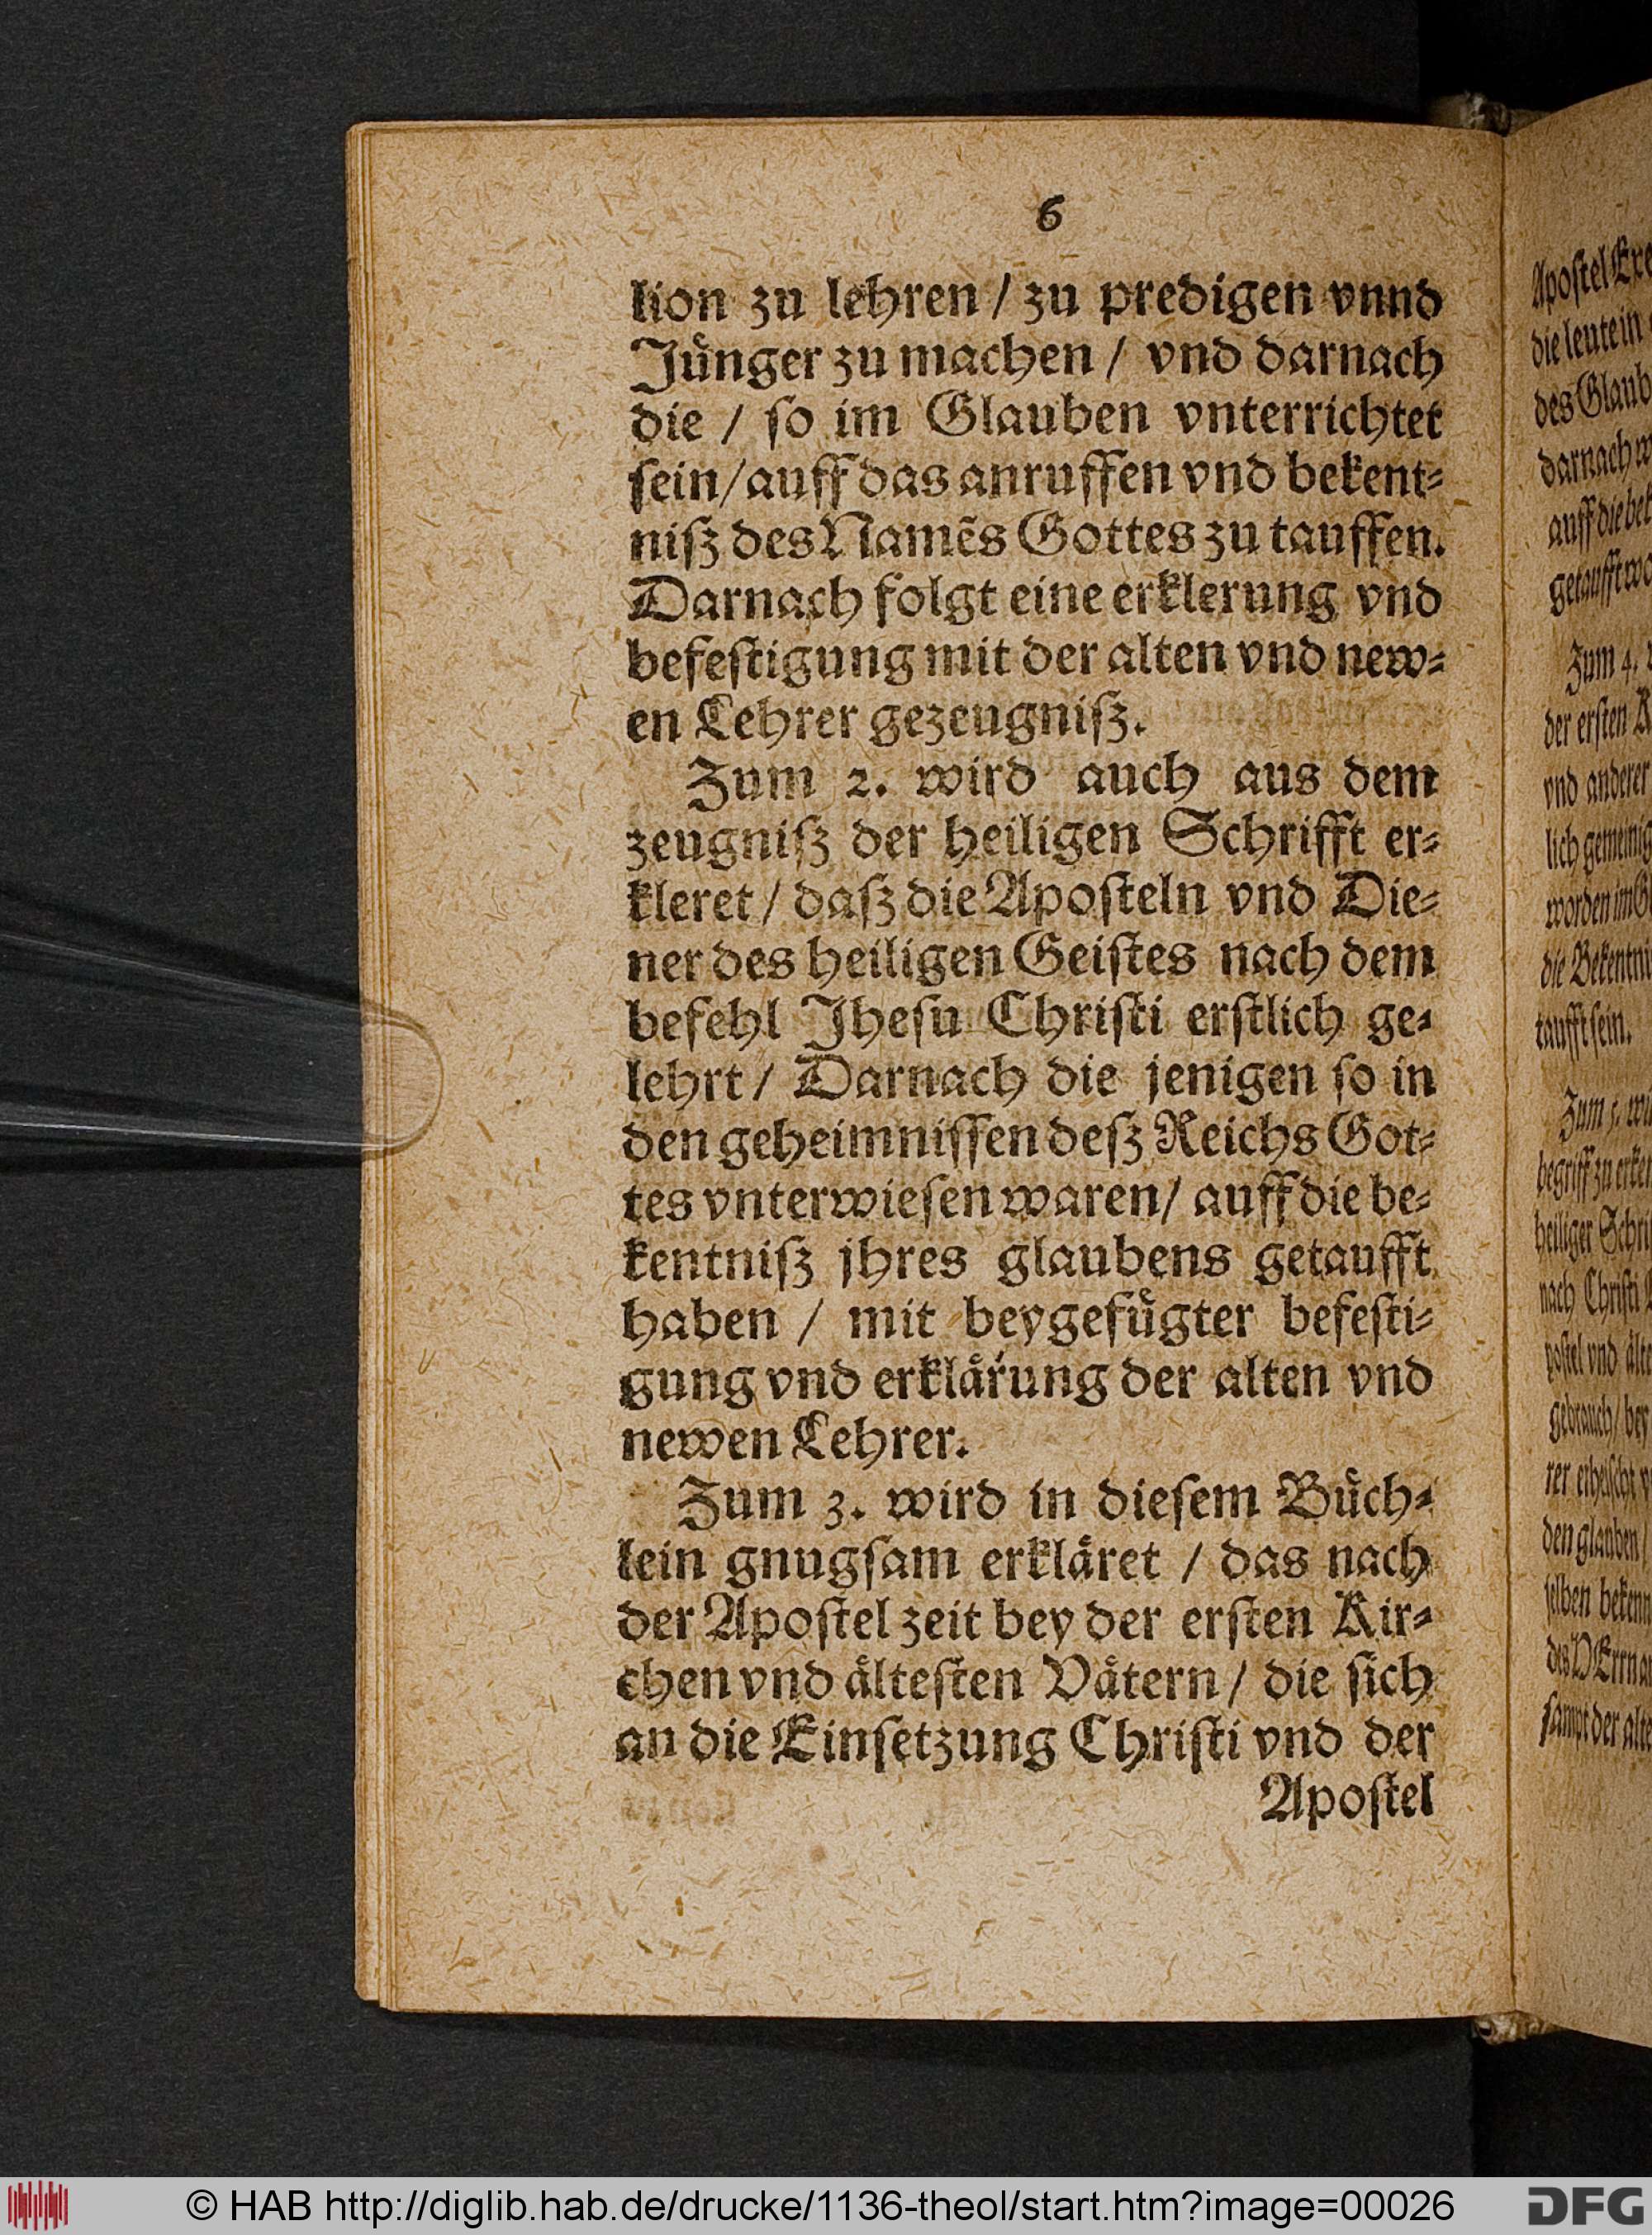 6
lion zu lehren / zu predigen vnnd
Jünger zu machen / vnd darnach
die / so im Glauben vnterrichtet
sein/auff das anruffen vnd bekent⸗
niſz des Namẽs Gottes zu tauffen.
Darnach folgt eine erklerung vnd
befeſtigung mit der alten vnd new⸗
en Lehrer gezeugniſz.
Zum 2. wird auch aus dem
zeugniſz der heiligen Schrifft er⸗
kleret / daſz die Apoſteln vnd Die⸗
ner des heiligen Geiſtes nach dem
befehl Jheſu Chriſti erſtlich ge⸗
lehrt / Darnach die jenigen ſo in
den geheimniſſen deſz Reichs Got⸗
tes vnterwieſen waren/ auff die be⸗
kentniſz jhres glaubens getaufft
haben / mit beygefügter befeſti⸗
gung vnd erklärung der alten vnd
newen Lehrer.
Zum 3. wird in dieſem Büch⸗
lein gnugſam erkläret / das nach
der Apoſtel zeit bey der erſten Kir⸗
chen vnd älteſten Vätern / die ſich
an die Einſetzung Chriſti vnd der
Apoſtel
die leute in
des Glaub
darnach
Zum 4.
der erſten
vnd anderer
tauffſt ſein.
heiliger
nach Chriſti
den glauben
© HAB http://diglib.hab.de/drucke/1136-theol/start.htm?image=00026
DFG